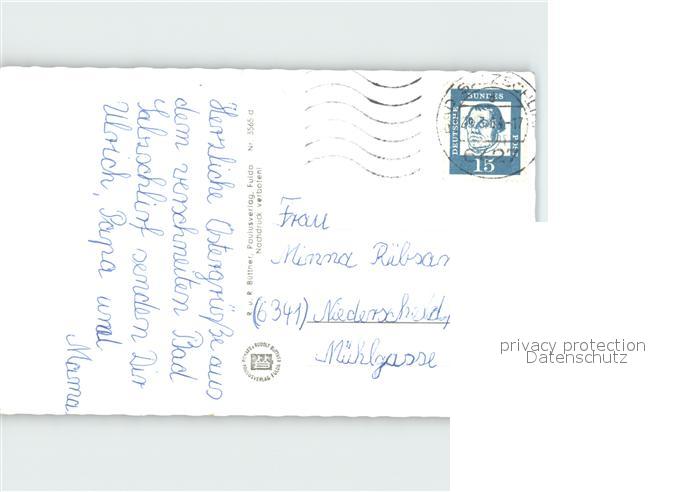 Herzliche Ostergrüße aus
dem verschneiten Bad
Salzschlirf senden Dir
Ulrich, Papa und
Mama
R. u. R. Büttner, Paulusverlag, Fulda Nr. 3565 d
Nachdruck verboten!
DEUTSCHE
BUNDES
POST
15
Frau
Minna Rübsam
(6341) Niederscheld,
Mühlgasse
privacy protection
Datenschutz